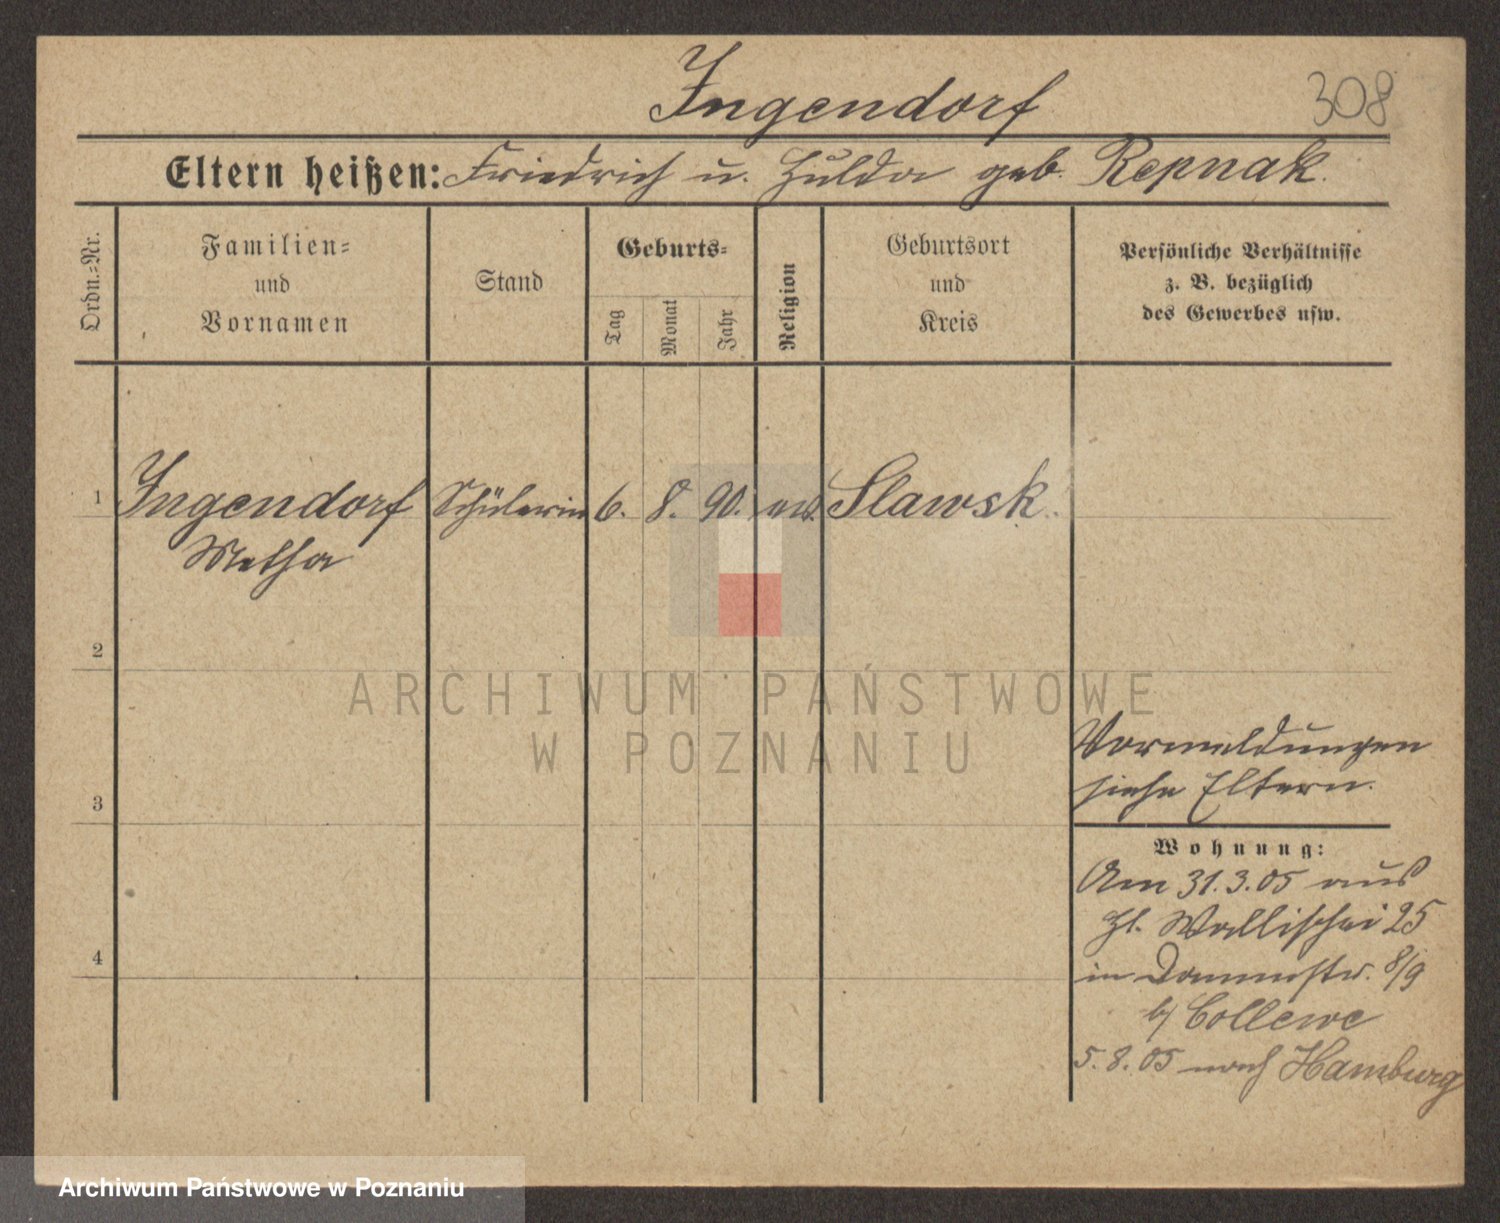 Ingendorf
308
Eltern heißen: Friedrich u. Hulda geb. Repnak.
Ordn.=Nr.
Familien=
und
Vornamen
Stand
Geburts=
Tag
Monat
Jahr
Religion
Geburtsort
und
Kreis
Persönliche Verhältnisse
z. B. bezüglich
des Gewerbes usw.
1 Ingendorf Schülerin 6. 8. 90. ev. Slawsk.
Metha
2
ARCHIWUM PAŃSTWOWE
W POZNANIU
Vormeldungen
siehe Eltern.
3
Wohnung:
Am 31.3.05 aus
Hl. Wallischei 25
in Dammstr. 8/9
b/ Collewe
4
5.8.05 nach Hamburg
Archiwum Państwowe w Poznaniu